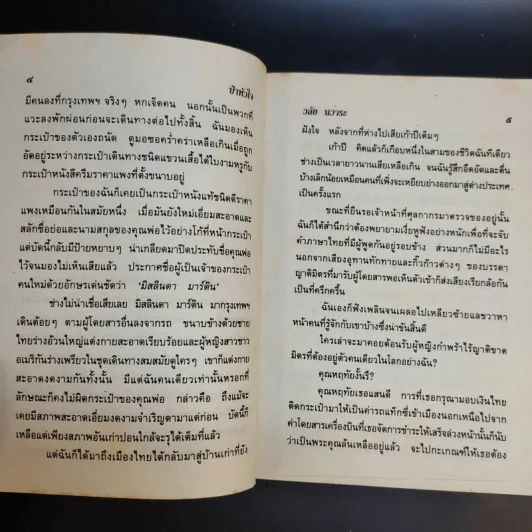 ๔
ป่าหัวใจ
มีคนลงที่กรุงเทพฯ จริงๆ หกเจ็ดคน นอกนั้นเป็นพวกที่
แวะลงพักผ่อนก่อนจะเดินทางต่อไปทั้งสิ้น ฉันมองเห็น
กระเป๋าของตัวเองถนัด ดูมอซอคร่ำคร่าเหลือเกินเมื่อถูก
อัดอยู่ระหว่างกระเป๋าเดินทางชนิดแขวนเสื้อได้ใบงามหรูกับ
กระเป๋าหนังสีครีมราคาแพงที่ดั้งขนาบอยู่
กระเป๋าของฉันก็เคยเป็นกระเป๋าหนังแท้ชนิดดีราคา
แพงเหมือนกันในสมัยหนึ่ง เมื่อมันยังใหม่เอี่ยมสะอาดและ
สลักชื่อย่อและนามสกุลของคุณพ่อไว้อย่างโก้ที่หน้ากระเป๋า
แต่บัดนี้กลับมีป้ายหยาบๆ น่าเกลียดมาปิดประทับชื่อคุณพ่อ
ไว้จนมองไม่เห็นเสียแล้ว ประกาศชื่อผู้เป็นเจ้าของกระเป๋า
คนใหม่ด้วยอักษรเด่นชัดว่า 'มิสลินดา มาร์ติน'
ช่างไม่น่าเชื่อเสียเลย มิสลินดา มาร์ติน มากรุงเทพฯ
เดินต้อยๆ ตามผู้โดยสารอื่นลงจากรถ ขนาบข้างด้วยชาย
ไทยร่างอ้วนใหญ่แต่งกายสะอาดเรียบร้อยและผู้หญิงสาวชาว
อเมริกันร่างเพรียวในชุดเดินทางสมสมัยดูใครๆ เขาก็แต่งกาย
สะอาดงดงามกันทั้งนั้น มีแต่ฉันคนเดียวเท่านั้นหรอกที่
ลักษณะก็คงไม่ผิดกระเป๋าของคุณพ่อ กล่าวคือ ถึงแม้จะ
เคยมีสภาพสะอาดเอี่ยมงดงามจำเริญตามาแต่ก่อน บัดนี้ก็
เหลือแต่เพียงสภาพอันเก่าปอนใกล้จะรุ่ยเต็มที่แล้ว
แต่ฉันก็ได้มาถึงเมืองไทยได้กลับมาสู่บ้านเก่าที่ยัง
วลัย นวาระ
๕
ฝังใจ หลังจากที่ห่างไปเสียเก้าปีเต็มๆ
เก้าปี คิดแล้วก็เกือบหนึ่งในสามของชีวิตฉันทีเดียว
ช่างเป็นเวลายาวนานเสียเหลือเกิน จนฉันรู้สึกอึดอัดและตื่น
บ้างเล็กน้อยเหมือนคนที่เพิ่งจะเหยียบย่างออกมาสู่ต่างประเทศ
เป็นครั้งแรก
ขณะที่ยืนรอเจ้าหน้าที่ศุลกากรมาตรวจของอยู่นั้น
ฉันก็ได้สำนึกว่าต้องพยายามเงี่ยหูฟังอย่างหนักเพื่อที่จะจับ
คำภาษาไทยที่มีผู้พูดกันอยู่รอบข้าง ส่วนมากก็ไม่มีอะไร
นอกจากเสียงอุทานทักทายและกิ๊วก๊าวต่างๆ ของบรรดา
ญาติมิตรที่มารับผู้โดยสารพอเห็นตัวเข้าก็ส่งเสียงเรียกลั่นกัน
เป็นที่ครึกครื้น
ฉันเองก็ฟังเพลินจนเผลอไปเหลียวซ้ายแลขวาหา
หน้าคนที่รู้จักกับเขาบ้างซึ่งน่าขันสิ้นดี
ใครเล่าจะมาคอยต้อนรับผู้หญิงกำพร้าไร้ญาติขาด
มิตรที่ต้องอยู่ตัวคนเดียวในโลกอย่างฉัน?
คุณหฤทัยงั้นรึ?
คุณหฤทัยเธอแสนดี การที่เธอกรุณามอบเงินไทย
ติดกระเป๋ามาให้เป็นค่ารถแท็กซี่เข้าเมืองนอกเหนือไปจาก
ค่าโดยสารเครื่องบินที่เธอจัดการชำระให้เสร็จล่วงหน้านั้นก็นับ
ว่าเป็นพระคุณล้นเหลืออยู่แล้ว จะไปกะเกณฑ์ให้เธอต้อง